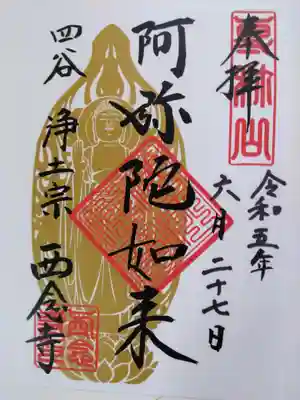 奉拝
令和五年
六月二十七日
阿弥陀如来
四谷
浄土宗
西念寺